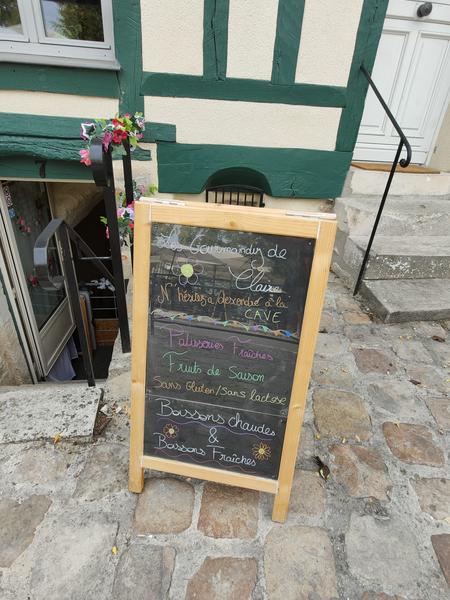 Les Gourmandiz de
Claire
N'hésitez à descendre à la
CAVE
Patisseries Fraîches
Fruits de Saison
Sans Gluten/Sans lactose
Boissons chaudes
&
Boissons Fraîches